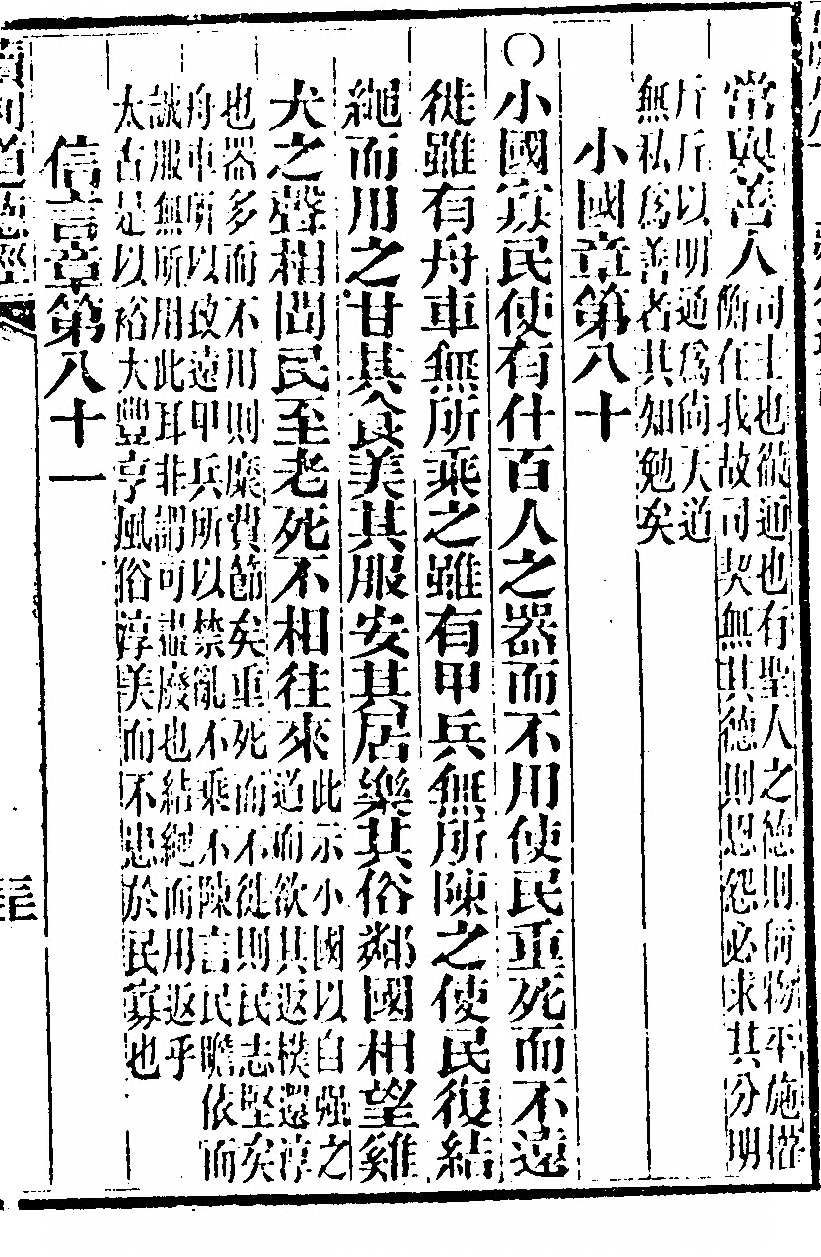 常與善人司主也徹通也有聖人之德則物平施權
衡在我故司契無其德則恩怨必求其分明
斤斤以明通爲尙天道
無私爲善者其知勉矣
小國章第八十
○小國寡民使有什百人之器而不用使民重死而不遠
徙雖有舟車無所乘之雖有甲兵無所陳之使民復結
繩而用之甘其食美其服安其居樂其俗鄰國相望雞
犬之聲相聞民至老死不相往來此示小國以自强之
道而欲其返樸還淳
也器多而不用則糜費節矣重死而不徙則民志堅矣
舟車所以致遠甲兵所以禁亂不乘不陳言民瞻依而
誠服無所用此耳非謂可盡廢也結繩而用返乎
太古是以裕大豐亨風俗淳美而不患於民寡也
信言章第八十一
道德經